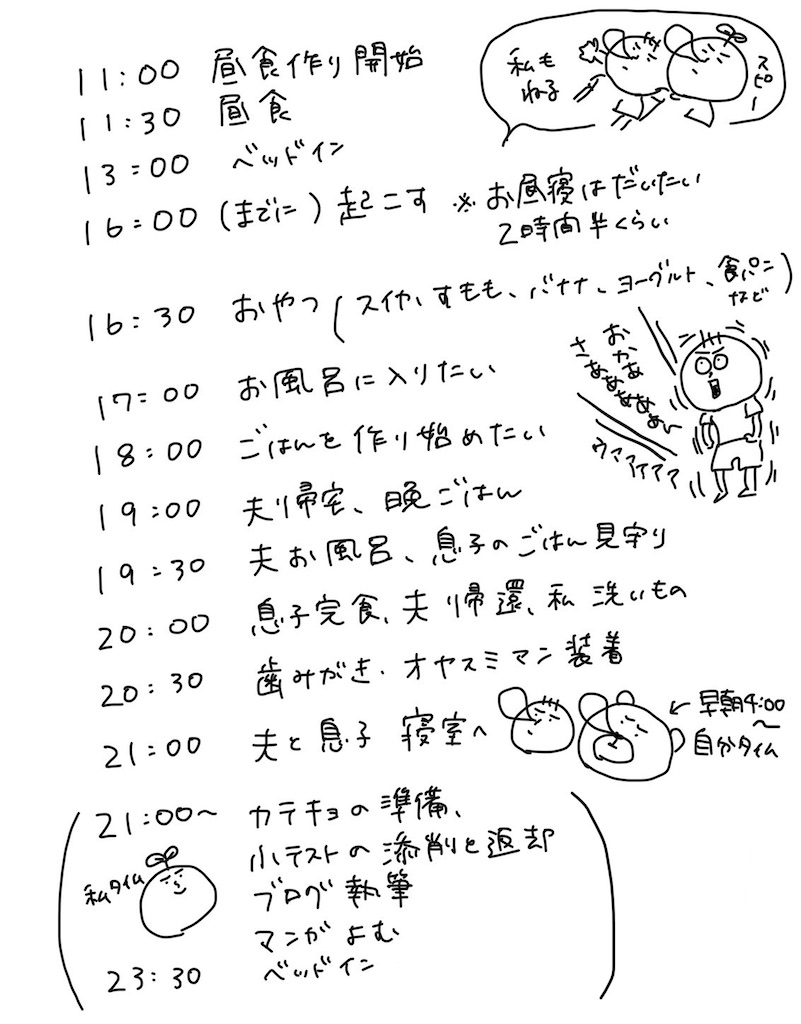 11:00 昼食作り開始
11:30 昼食
13:00 ベッドイン
私も
ねる
スピー
16:00 (までに) 起こす ※お昼寝はだいたい
2時間半くらい
16:30 おやつ (スイカ、すもも、バナナ、ヨーグルト、食パン
など)
17:00 お風呂に入りたい
おかあ
さぁぁぁぁぁぁ〜
18:00 ごはんを作り始めたい
19:00 夫帰宅、晩ごはん
19:30 夫お風呂、息子のごはん見守り
20:00 息子完食、夫帰還、私洗いもの
20:30 歯みがき・オヤスミマン装着
21:00 夫と息子 寝室へ
←早朝4:00
〜
自分タイム
(21:00〜 カテキョの準備、
小テストの添削と返却
私タイム
ブログ執筆
マンガよむ
23:30 ベッドイン)